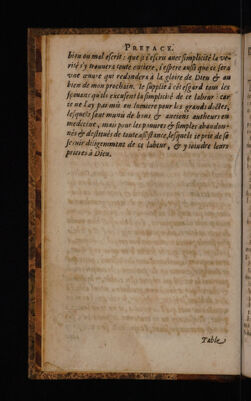 PREFACE.
bien ou mal escrit: que si i'escry auec simplicité la ve-
rité s'y trouuera toute entiere, i'espere aussi que ce sera
vne œuure qui redondera à la gloire de Dieu & au
bien de mon prochain. Ie supplie à cest esgard tous les
sçauans qu'ils excusent la simplicité de ce labeur: car
ie ne l'ay pas mis en lumiere pour les grands doctes,
lesquels sont munis de bons & anciens autheurs en
medecine, mais pour les pauures & simples abandon-
nés & destitués de toute assistance, lesquels ie prie de se
seruir diligemment de ce labeur, & y ioindre leurs
prieres à Dieu.
Table